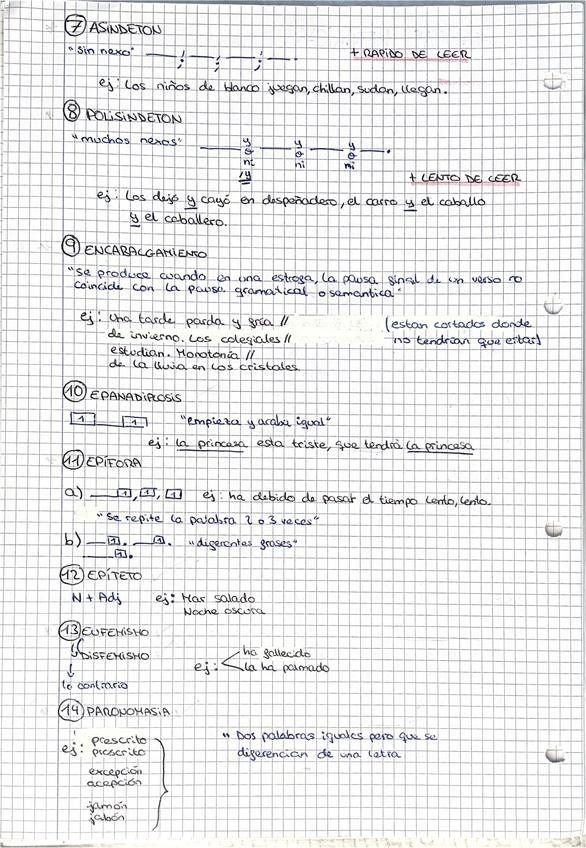 7 ASÍNDETON
"sin nexo" ; ; ; . + RAPIDO DE LEER
ej: Los niños de blanco juegan, chillan, sudan, llegan.
8 POLISÍNDETON
"muchos nexos" y y y
o o o
ni ni ni
,y + LENTO DE LEER
ej: Los dejó y cayó en despeñadero, el carro y el caballo
y el caballero.
9 ENCABALGAMIENTO
"se produce cuando en una estrofa, la pausa final de un verso no
coincide con la pausa gramatical o semantica"
ej: Una tarde parda y fría // (estan cortados donde
de invierno. Los colegiales // no tendrian que estar)
estudian. Monotonía //
de la lluvia en los cristales.
10 EPANADIPLOSIS
1 1 "empieza y acaba igual"
ej: la princesa esta triste, que tendrá la princesa
11 EPÍFORA
a) 1, 1, 1 ej: ha debido de pasar el tiempo lento, lento.
"se repite la palabra 2 o 3 veces"
b) 1. 1. "diferentes frases"
1.
12 EPÍTETO
N + Adj ej: Mar salado
Noche oscura
13 EUFEMISMO
DISFEMISMO ha fallecido
ej: la ha palmado
lo contrario
14 PARONOMASIA
ej: prescrito " Dos palabras iguales pero que se
proscrito diferencian de una letra
excepción
acepción
jamón
jabón